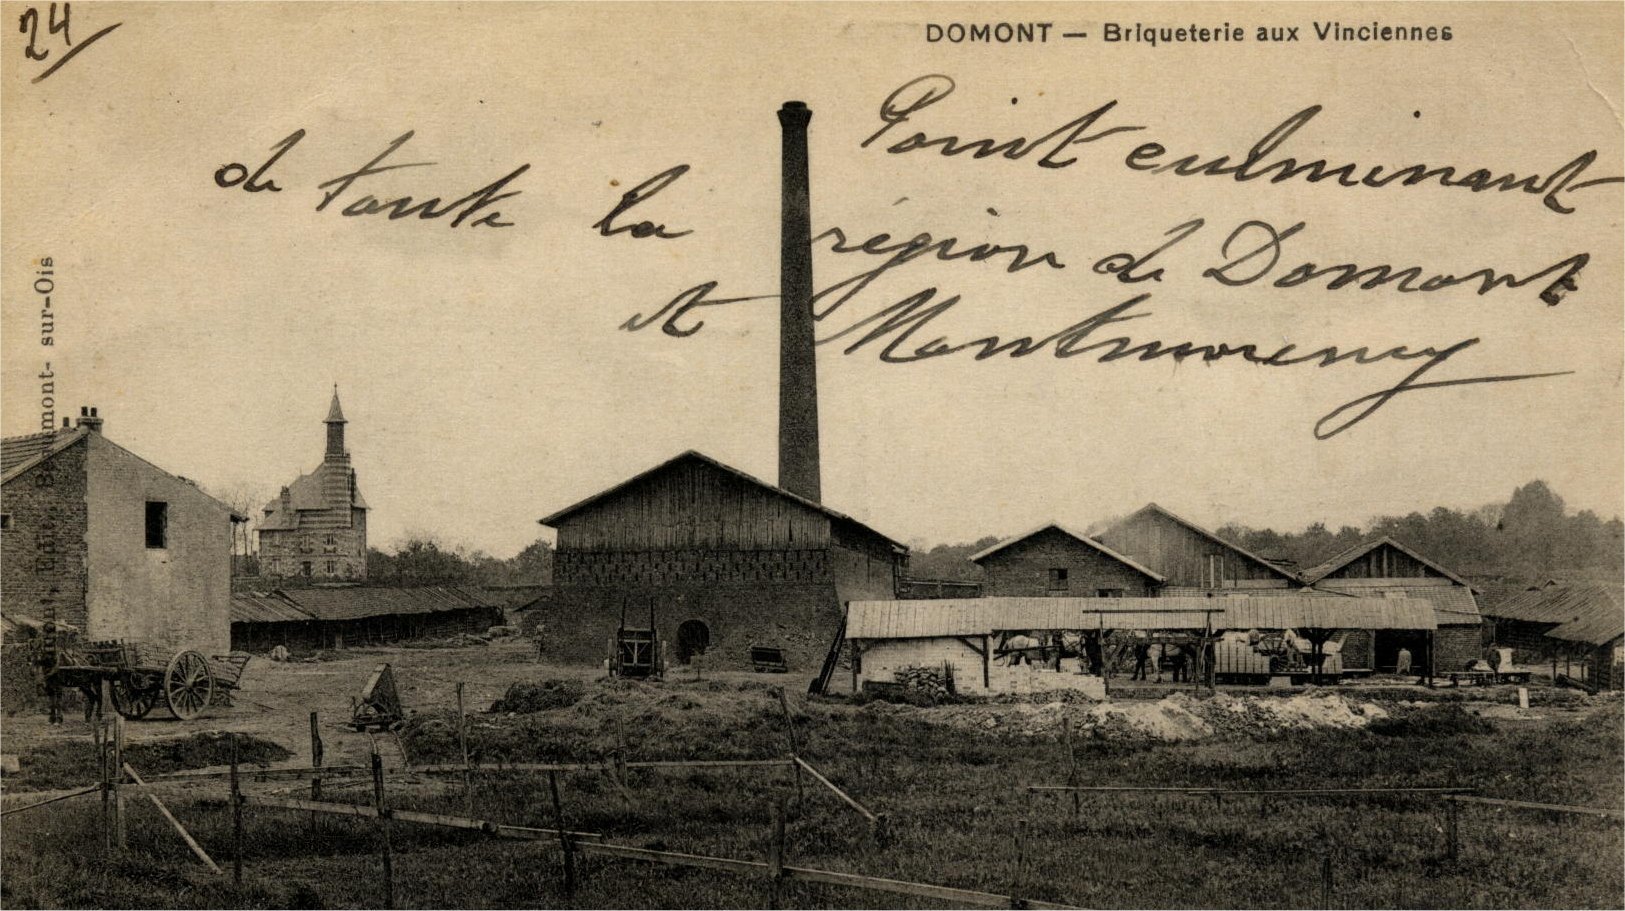 24
DOMONT — Briqueterie aux Vinciennes
Point culminant
de toute la région de Domont
et Montmorency
mont- sur-Ois